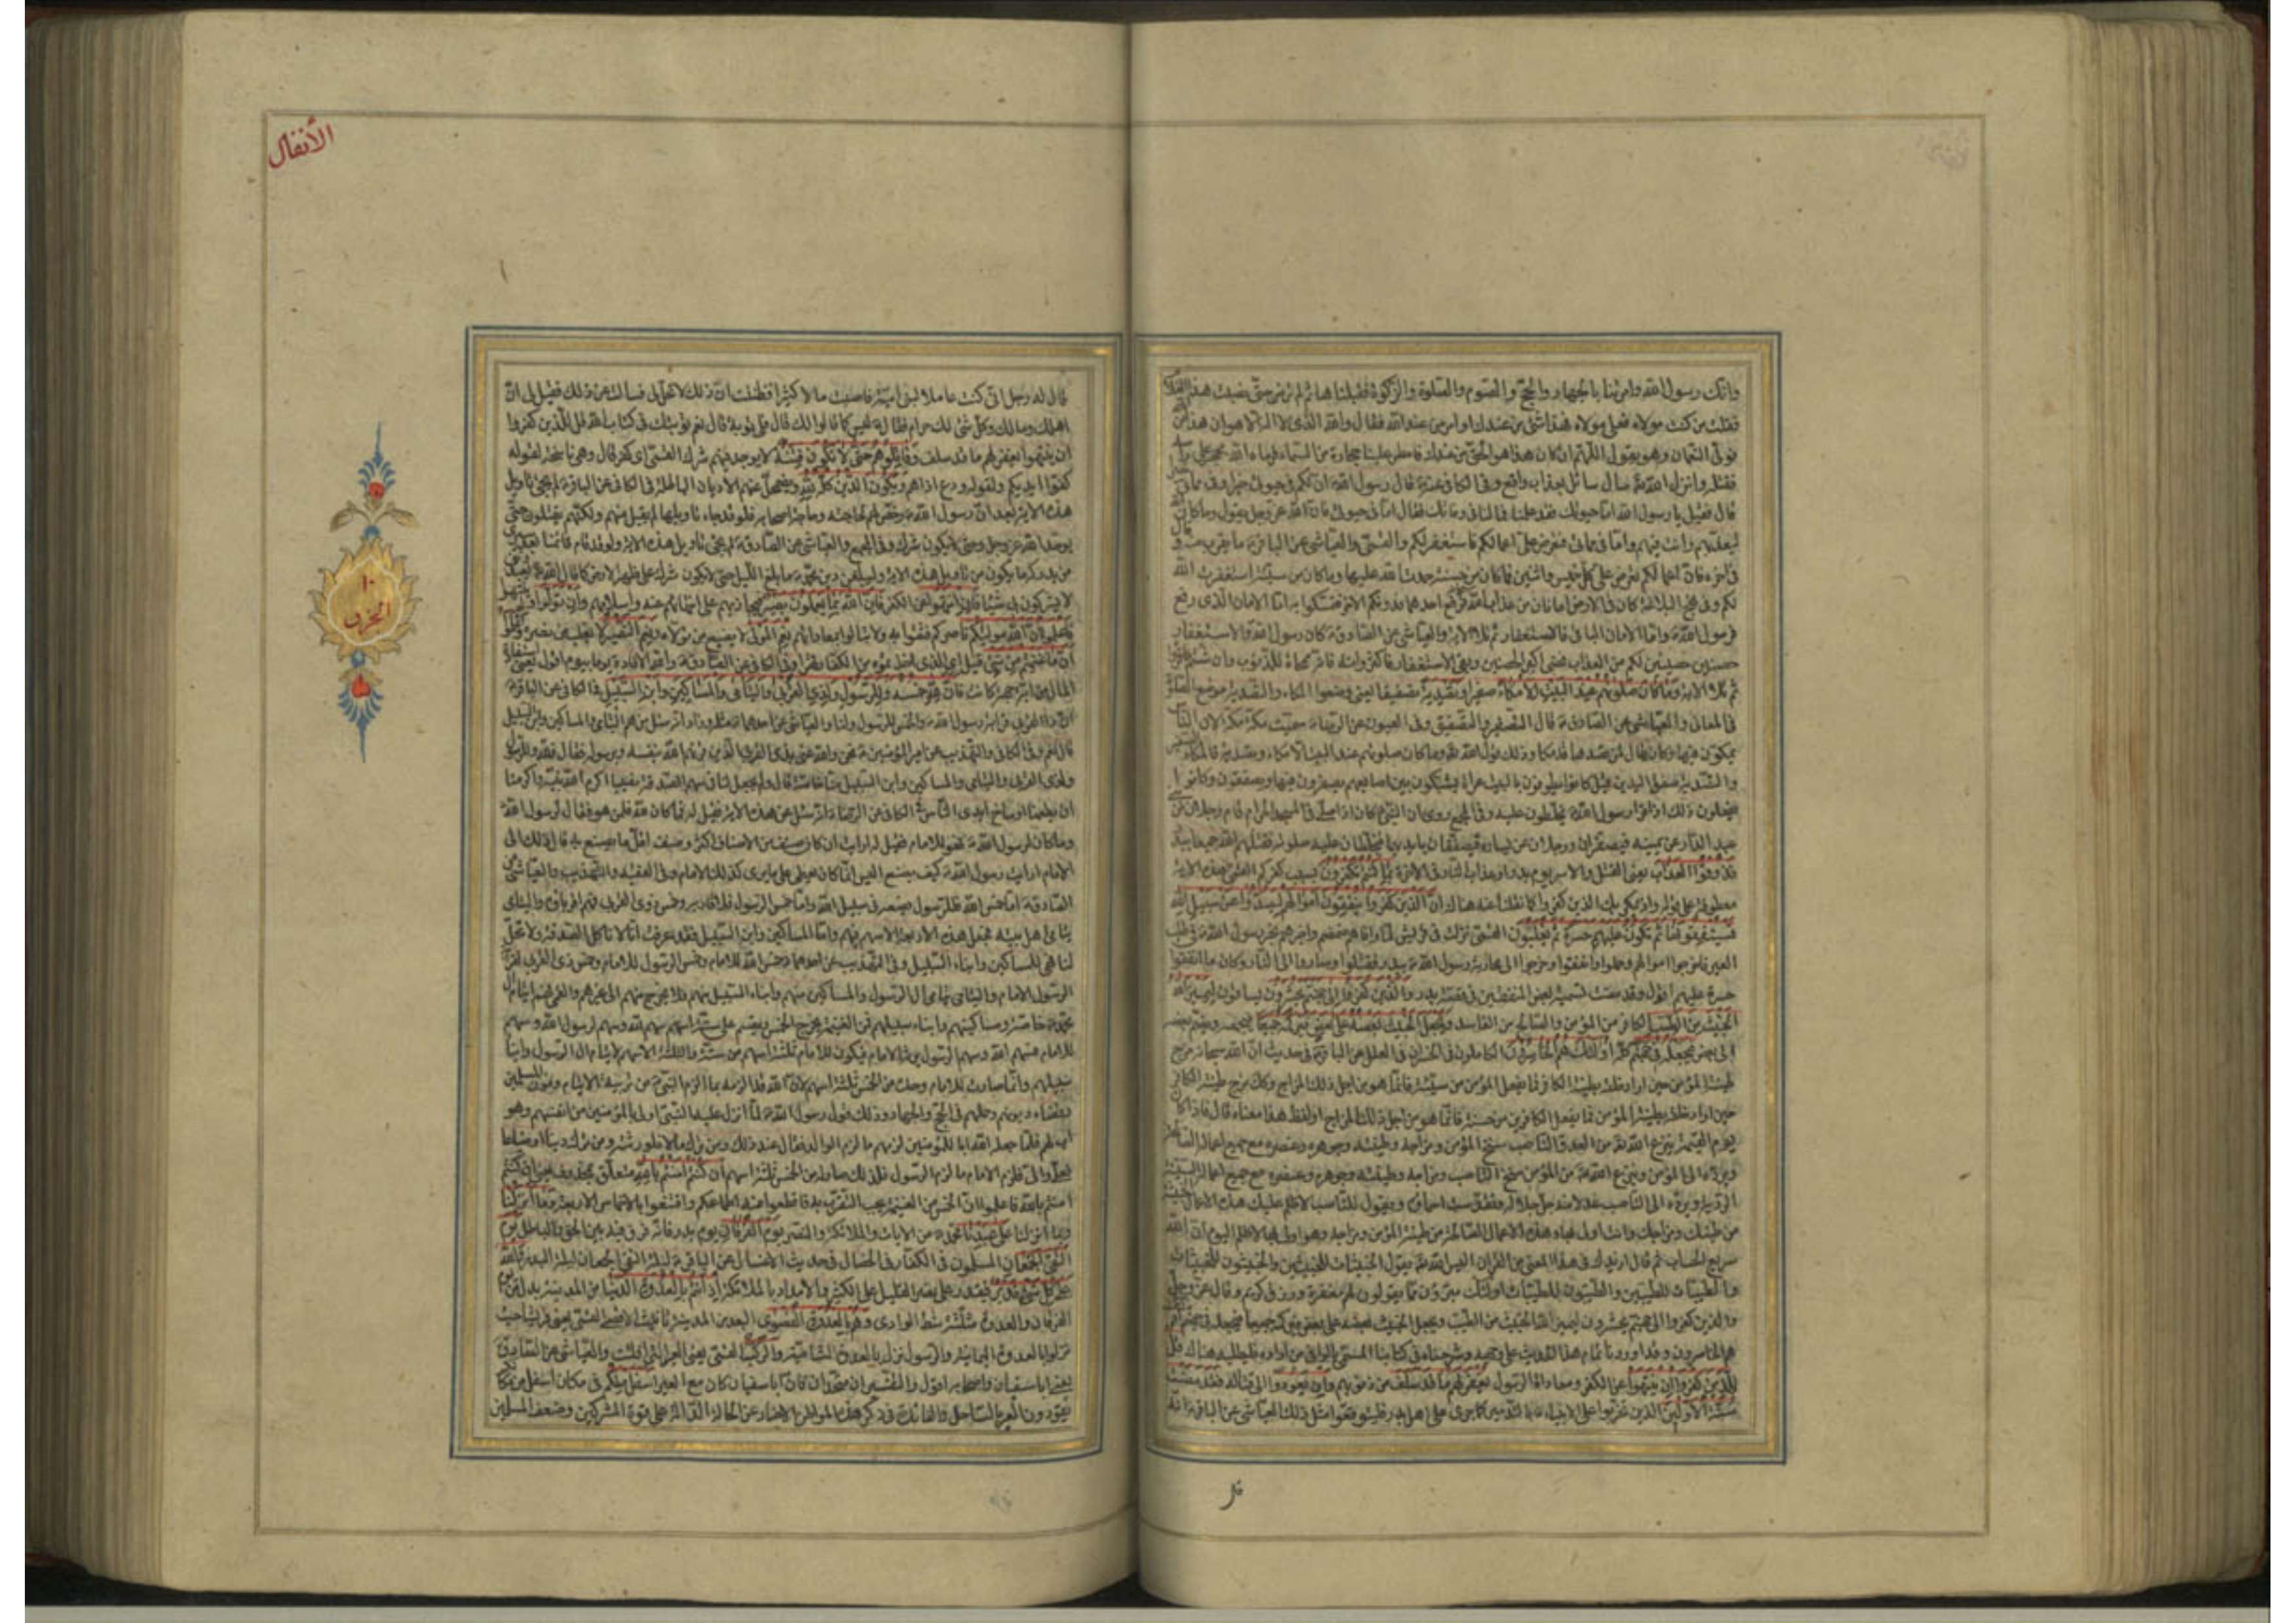 وانك رسول الله وامرتنا بالجهاد والحج والصوم والصلوة والزكوة فقبلناها ثم لم ترض حتى نصبت هذا الغلام
فقلت من كنت مولاه فعلي مولاه فهذا شئ من عندك او امر من عند الله فقال والله الذي لا اله الا هو ان هذا من الله
فولى النعمان وهو يقول اللهم ان كان هذا هو الحق من عندك فامطر علينا حجارة من السماء فرماه الله بحجر على راسه
فقتله وانزل الله سال سائل بعذاب واقع وفي الكافي عنه قال رسول الله ان لكم في حيوتي خيرا وفي مماتي
قال فقيل يا رسول الله اما حيوتك فقد علمنا فما لنا في وفاتك فقال اما في حيوتي فان الله عز وجل يقول وما كان الله
ليعذبهم وانت فيهم واما في مماتي فتعرض علي اعمالكم فاستغفر لكم والقمي والعياشي عن الباقر ما يقرب منه و
في اخره فان اعمالكم تعرض علي كل خميس واثنين فما كان من حسنة حمدت الله عليها وما كان من سيئة استغفرت الله
لكم وفي نهج البلاغة كان في الارض امانان من عذاب الله فرفع احدهما فدونكم الاخر فتمسكوا به اما الامان الذي رفع
فرسول الله واما الامان الباقي فالاستغفار ثم تلا الاية والعياشي عن الصادق كان رسول الله والاستغفار
حصنين حصينين لكم من العذاب فمضى اكبر الحصنين وبقي الاستغفار فاكثروا منه فانه ممحاة للذنوب وان شئتم فاقرؤا
ثم تلا الاية وما كان صلوتهم عند البيت الا مكاء صفيرا وتصدية تصفيقا يعني وضعوا المكاء والتصدية موضع الصلوة
في المعاني والعياشي عن الصادق قال التصفير والتصفيق وفي العيون عن الرضا سميت مكة مكة لان الناس
يمكون فيها وكان يقال لمن قصدها قد مكا وذلك قول الله وما كان صلوتهم عند البيت الا مكاء وتصدية فالمكاء التصفير
والتصدية صفق اليدين قيل كانوا يطوفون بالبيت عراة يشبكون بين اصابعهم يصفرون فيها ويصفقون وكانوا
يفعلون ذلك اذا قرا رسول الله يخلطون عليه وفي المجمع روي ان النبي كان اذا صلى في المسجد الحرام قام رجلان من بني
عبد الدار عن يمينه فيصفران ورجلان عن يساره فيصفقان بايديهما فيخلطان عليه صلوته فقتلهم الله جميعا ببدر
فذوقوا العذاب يعني القتل والاسر يوم بدر او عذاب النار في الاخرة بما كنتم تكفرون بسبب كفركم القمي هذه الاية
معطوفة على قوله واذ يمكر بك الذين كفروا كما نقلنا عنه هناك ان الذين كفروا ينفقون اموالهم ليصدوا عن سبيل الله
فسينفقونها ثم تكون عليهم حسرة ثم يغلبون القمي نزلت في قريش لما وافاهم ضمضم واخبرهم بخروج رسول الله في طلب
العير فاخرجوا اموالهم وحملوا وانفقوا وخرجوا الى محاربة رسول الله ببدر فقتلوا وصاروا الى النار وكان ما انفقوا
حسرة عليهم اقول وقد سبقت تسمية بعض المنفقين في قصة بدر والذين كفروا الى جهنم يحشرون يساقون ليميز الله
الخبيث من الطيب الكافر من المؤمن والصالح من الفاسد ويجعل الخبيث بعضه على بعض فيركمه جميعا فيجمعه ويضم بعضه
الى بعض فيجعله في جهنم كله اولئك هم الخاسرون الكاملون في الخسران في العلل عن الباقر في حديث ان الله سبحانه مزج
طينة المؤمن حين اراد خلقه بطينة الكافر فما يفعل المؤمن من سيئة فانما هو من اجل ذلك المزاج وكذلك مزج طينة الكافر
حين اراد خلقه بطينة المؤمن فما يفعل الكافر من حسنة فانما هو من اجل ذلك المزاج او لفظ هذا معناه قال فاذا كان
يوم القيمة ينزع الله من العدو الناصب سنخ المؤمن ومزاجه وطينته وجوهره وعنصره مع جميع اعماله الصالحة
ويرده الى المؤمن وينزع الله من المؤمن سنخ الناصب ومزاجه وطينته وجوهره وعنصره مع جميع اعماله السيئة
الردية ويرده الى الناصب عدلا منه جل جلاله وتقدست اسماؤه ويقول للناصب لا ظلم عليك هذه الاعمال الخبيثة
من طينتك ومزاجك وانت اولى بها وهذه الاعمال الصالحة من طينة المؤمن ومزاجه وهو اولى بها لا ظلم اليوم ان الله
سريع الحساب ثم قال ازيدك في هذا المعنى من القران اليس الله يقول الخبيثات للخبيثين والخبيثون للخبيثات
والطيبات للطيبين والطيبون للطيبات اولئك مبرؤن مما يقولون لهم مغفرة ورزق كريم وقال عز وجل
والذين كفروا الى جهنم يحشرون ليميز الله الخبيث من الطيب ويجعل الخبيث بعضه على بعض فيركمه جميعا فيجعله في جهنم اولئك
هم الخاسرون وقد اوردنا تمام هذا الحديث على وجهه وشرحناه في كتابنا المسمى بالوافي من اراده فليطلبه هناك قل
للذين كفروا ان ينتهوا عن الكفر ومعاداة الرسول يغفر لهم ما قد سلف من ذنوبهم وان يعودوا الى قتاله فقد مضت
سنة الاولين الذين تحزبوا على الانبياء بالتدمير كما جرى على اهل بدر فليتوقعوا مثل ذلك العياشي عن الباقر انه
قل
الأنفال
١٠
الحزب
قال له رجل اني كنت عاملا لبني امية فاصبت مالا كثيرا فظننت ان ذلك لا يحل لي فسالت عن ذلك فقيل لي ان
اهلك ومالك وكل شئ لك حرام فقال ليس كما قالوا لك قال فلي توبة قال نعم توبتك في كتاب الله قل للذين كفروا
ان ينتهوا يغفر لهم ما قد سلف وقاتلوهم حتى لا تكون فتنة لا يوجد فيهم شرك القمي اي كفر قال وهي ناسخة لقوله
كفوا ايديكم ولقوله ودع اذاهم ويكون الدين كله لله ويضمحل عنهم الاديان الباطلة في الكافي عن الباقر لم يجئ تاويل
هذه الاية بعد ان رسول الله رخص لهم لحاجته وحاجة اصحابه فلو قد جاء تاويلها لم يقبل منهم ولكنهم يقتلون حتى
يوحد الله عز وجل وحتى لا يكون شرك وفي المجمع والعياشي عن الصادق لم يجئ تاويل هذه الاية ولو قد قام قائمنا بعد سيرى
من يدركه ما يكون من تاويل هذه الاية وليبلغن دين محمد ما بلغ الليل حتى لا يكون شرك على ظهر الارض كما قال الله يعبدونني
لا يشركون بي شيئا فان انتهوا عن الكفر فان الله بما يعملون بصير فيجازيهم على انتهائهم عنه واسلامهم وان تولوا ولم ينتهوا
فاعلموا ان الله موليكم ناصركم فثقوا به ولا تبالوا بمعاداتهم نعم المولى لا يضيع من تولاه ونعم النصير لا يغلب من نصره واعلموا
ان ما غنمتم من شئ قيل اي الذي اخذتموه من الكفار قهرا وفي الكافي عن الصادق هي والله الافادة يوما بيوم اقول يعني استفادة
المال من اية جهة كانت فان لله خمسه وللرسول ولذي القربى واليتامى والمساكين وابن السبيل في الكافي عن الباقر
ان ذا القربى قرابة رسول الله والخمس للرسول ولنا والعياشي عن احدهما مثله وزاد انه سئل من هم اليتامى والمساكين وابن السبيل
قال نعم وفي الكافي والتهذيب عن امير المؤمنين نحن والله عنى بذي القربى الذين قرنهم الله بنفسه وبرسوله فقال فلله وللرسول
ولذي القربى واليتامى والمساكين وابن السبيل منا خاصة قال ولم يجعل لنا في سهم الصدقة نصيبا اكرم الله نبيه واكرمنا
ان يطعمنا اوساخ ايدي الناس وفي الكافي عن الرضا انه سئل عن هذه الاية فقيل له فما كان لله فلمن هو فقال لرسول الله
وما كان لرسول الله فهو للامام فقيل له ارايت ان كان صنف من الاصناف اكثر وصنف اقل ما يصنع به قال ذلك الى
الامام ارايت رسول الله كيف يصنع اليس انما كان يعطي على ما يرى كذلك الامام وفي الفقيه والتهذيب والعياشي عن
الصادق اما خمس الله فللرسول يضعه في سبيل الله واما خمس الرسول فلاقاربه وخمس ذوي القربى فهم اقرباؤه واليتامى
يتامى اهل بيته فجعل هذه الاربعة الاسهم فيهم واما المساكين وابن السبيل فقد عرفت انا لا ناكل الصدقة ولا تحل
لنا فهي للمساكين وابناء السبيل وفي التهذيب عن احدهما خمس الله للامام وخمس الرسول للامام وخمس ذي القربى لقرابة
الرسول الامام واليتامى يتامى ال الرسول والمساكين منهم وابناء السبيل منهم فلا يخرج منهم الى غيرهم والقمي هم ايتام ال
محمد خاصة ومساكينهم وابناء سبيلهم فمن الغنيمة يخرج الخمس ويقسم على ستة اسهم سهم لله وسهم لرسول الله وسهم
للامام فسهم الله وسهم الرسول يرثه الامام فيكون للامام ثلثة اسهم من ستة والثلثة الاسهم لايتام ال الرسول وابناء
سبيلهم وانما صارت للامام وحده من الخمس ثلثة اسهم لان الله قد الزمه بما الزم النبي من تربية الايتام ومؤن المسلمين
وقضاء ديونهم وحملهم في الحج والجهاد وذلك قول رسول الله لما انزل عليه النبي اولى بالمؤمنين من انفسهم وهو
اب لهم فلما جعله الله ابا للمؤمنين لزمه ما لزم الوالد فقال عند ذلك ومن ترك مالا فلورثته ومن ترك دينا او ضياعا
فعلي والي فلزم الامام ما لزم الرسول فلذلك صار له من الخمس ثلثة اسهم ان كنتم امنتم بالله متعلق بمحذوف يعني ان كنتم
امنتم بالله فاعلموا ان الخمس من الغنيمة يجب التقرب به فاقطعوا عنه اطماعكم واقتنعوا بالاخماس الاربعة وما انزلنا
وبما انزلنا على عبدنا محمد من الايات والملائكة والنصر يوم الفرقان يوم بدر فانه فرق فيه بين الحق والباطل يوم
التقى الجمعان المسلمون والكفار في الخصال في حديث الاغسال عن الباقر ليلة التقى الجمعان ليلة البدر والله
على كل شئ قدير فيقدر على نصر القليل على الكثير والامداد بالملائكة اذ انتم بالعدوة الدنيا من المدينة بدل من يوم
الفرقان والعدوة مثلثة شط الوادي وهم بالعدوة القصوى البعدى من المدينة تانيث الاقصى القمي يعني قريشا حيث
نزلوا بالعدوة اليمانية والرسول نزل بالعدوة الشامية والركب القمي يعني العير التي افلتت والعياشي عن الصادق
يعني ابا سفيان واصحابه اقول والمفسرون متحدان كان ابا سفيان كان مع العير اسفل منكم في مكان اسفل من مكانكم
يقودون العير بالساحل والفائدة في ذكر هذه المواطن الاخبار عن الحالة الدالة على قوة المشركين وضعف المسلمين